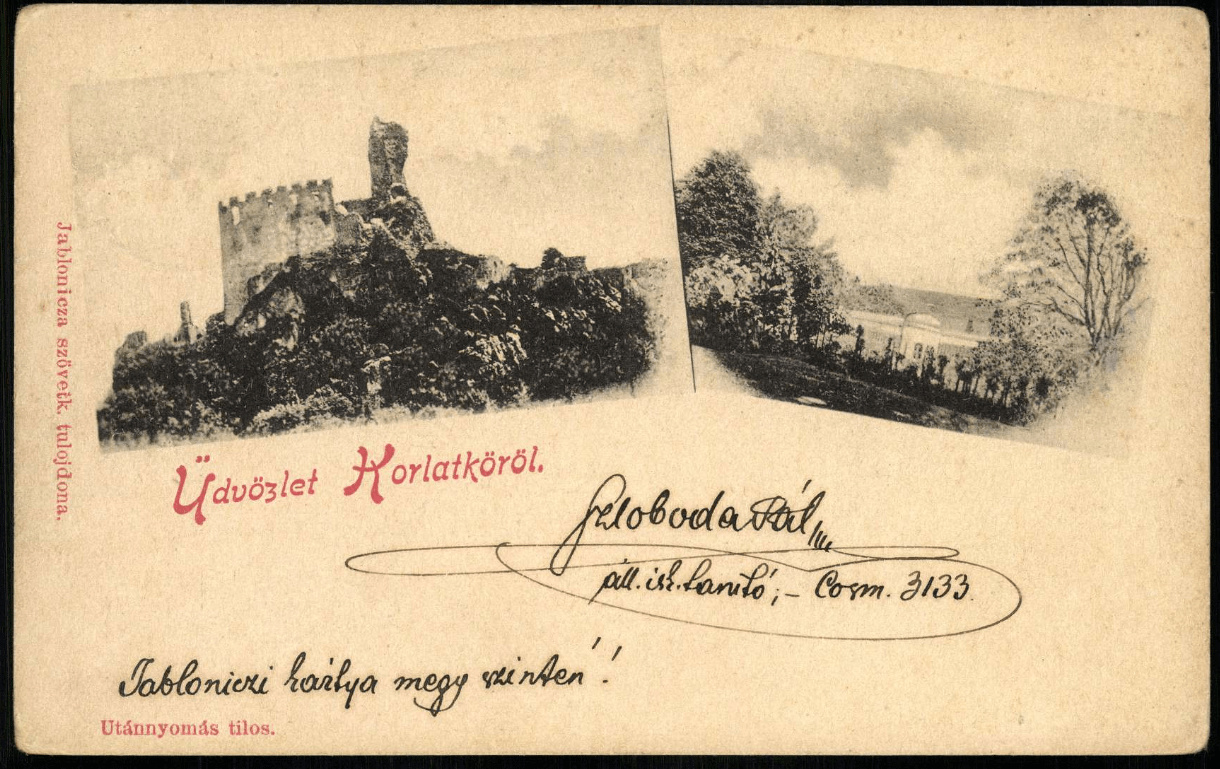 Jablonicza szövetk. tulojdona.
Üdvözlet Korlatköröl.
Szloboda Pál
áll. isk. tanító, – Cosm. 3133.
Jabloniczi kártya megy szintén!!
Utánnyomás tilos.